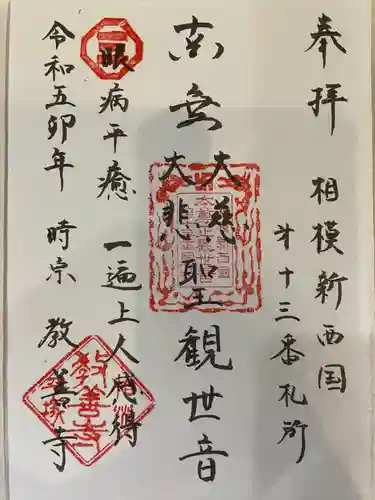 奉拝
相模新西国
才十三番札所
南無
大慈
大悲
聖観世音
眼病平癒 一遍上人感得
令和五卯年 時宗 教善寺
教善寺